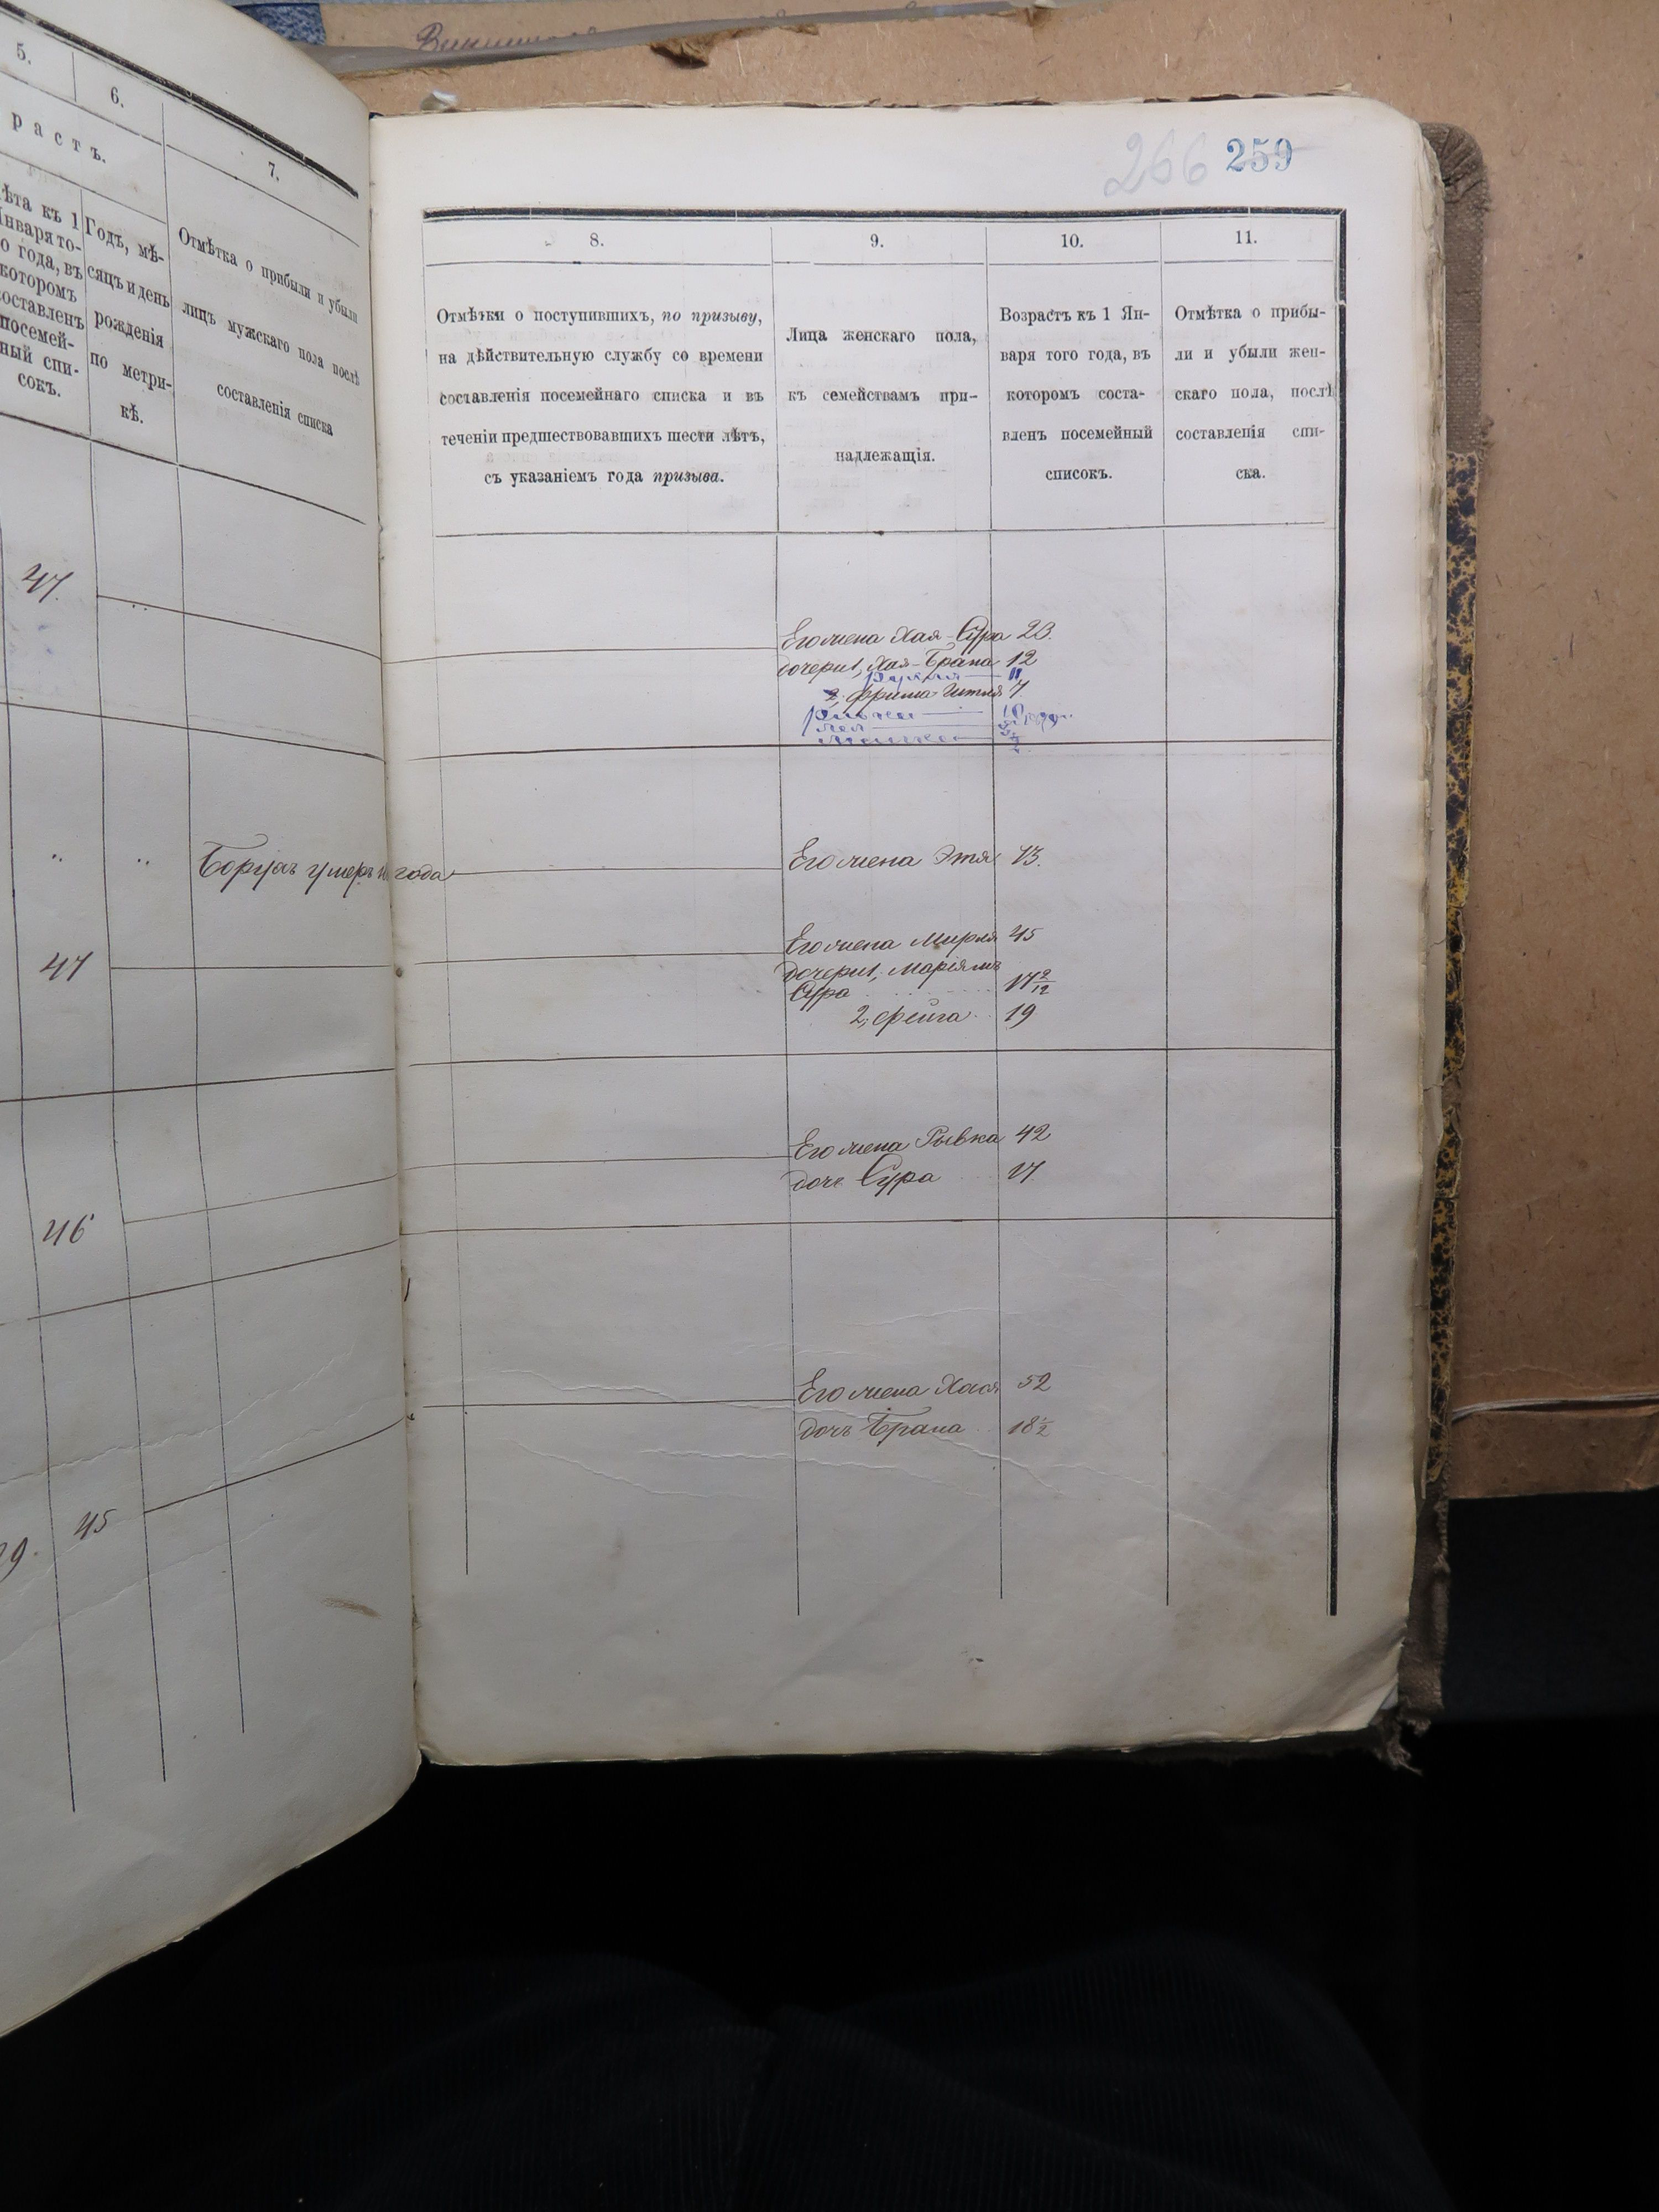 5.
6.
7.
растъ.
ѣта къ 1
Января то-
о года, въ
которомъ
составленъ
посемей-
ный спи-
сокъ.
Годъ, мѣ-
сяцъ и день
рожденія
по метри-
кѣ.
Отмѣтка о прибыли и убыли
лицъ мужскаго пола послѣ
составленія списка
47.
Борухъ умеръ
года
47
46
45
9.
266 259
8.
9.
10.
11.
Отмѣтки о поступившихъ, по призыву,
на дѣйствительную службу со времени
составленія посемейнаго списка и въ
теченіи предшествовавшихъ шести лѣтъ,
съ указаніемъ года призыва.
Лица женскаго пола,
къ семействамъ при-
надлежащія.
Возрастъ къ 1 Ян-
варя того года, въ
которомъ соста-
вленъ посемейный
списокъ.
Отмѣтка о прибы-
ли и убыли жен-
скаго пола, послѣ
составленія спи-
ска.
Его жена Хая-Сура 23.
дочери 1, Хая-Брана 12
11
2, Фрима-Гитля 7
10
Его жена Этя 73.
Его жена Мирля 45
дочери 1, Маріямъ
Сура 17 2/12
2, Фейга 19
Его жена Рывка 42
дочь Сура 17
Его жена Хая 52
дочь Брана 18 1/2